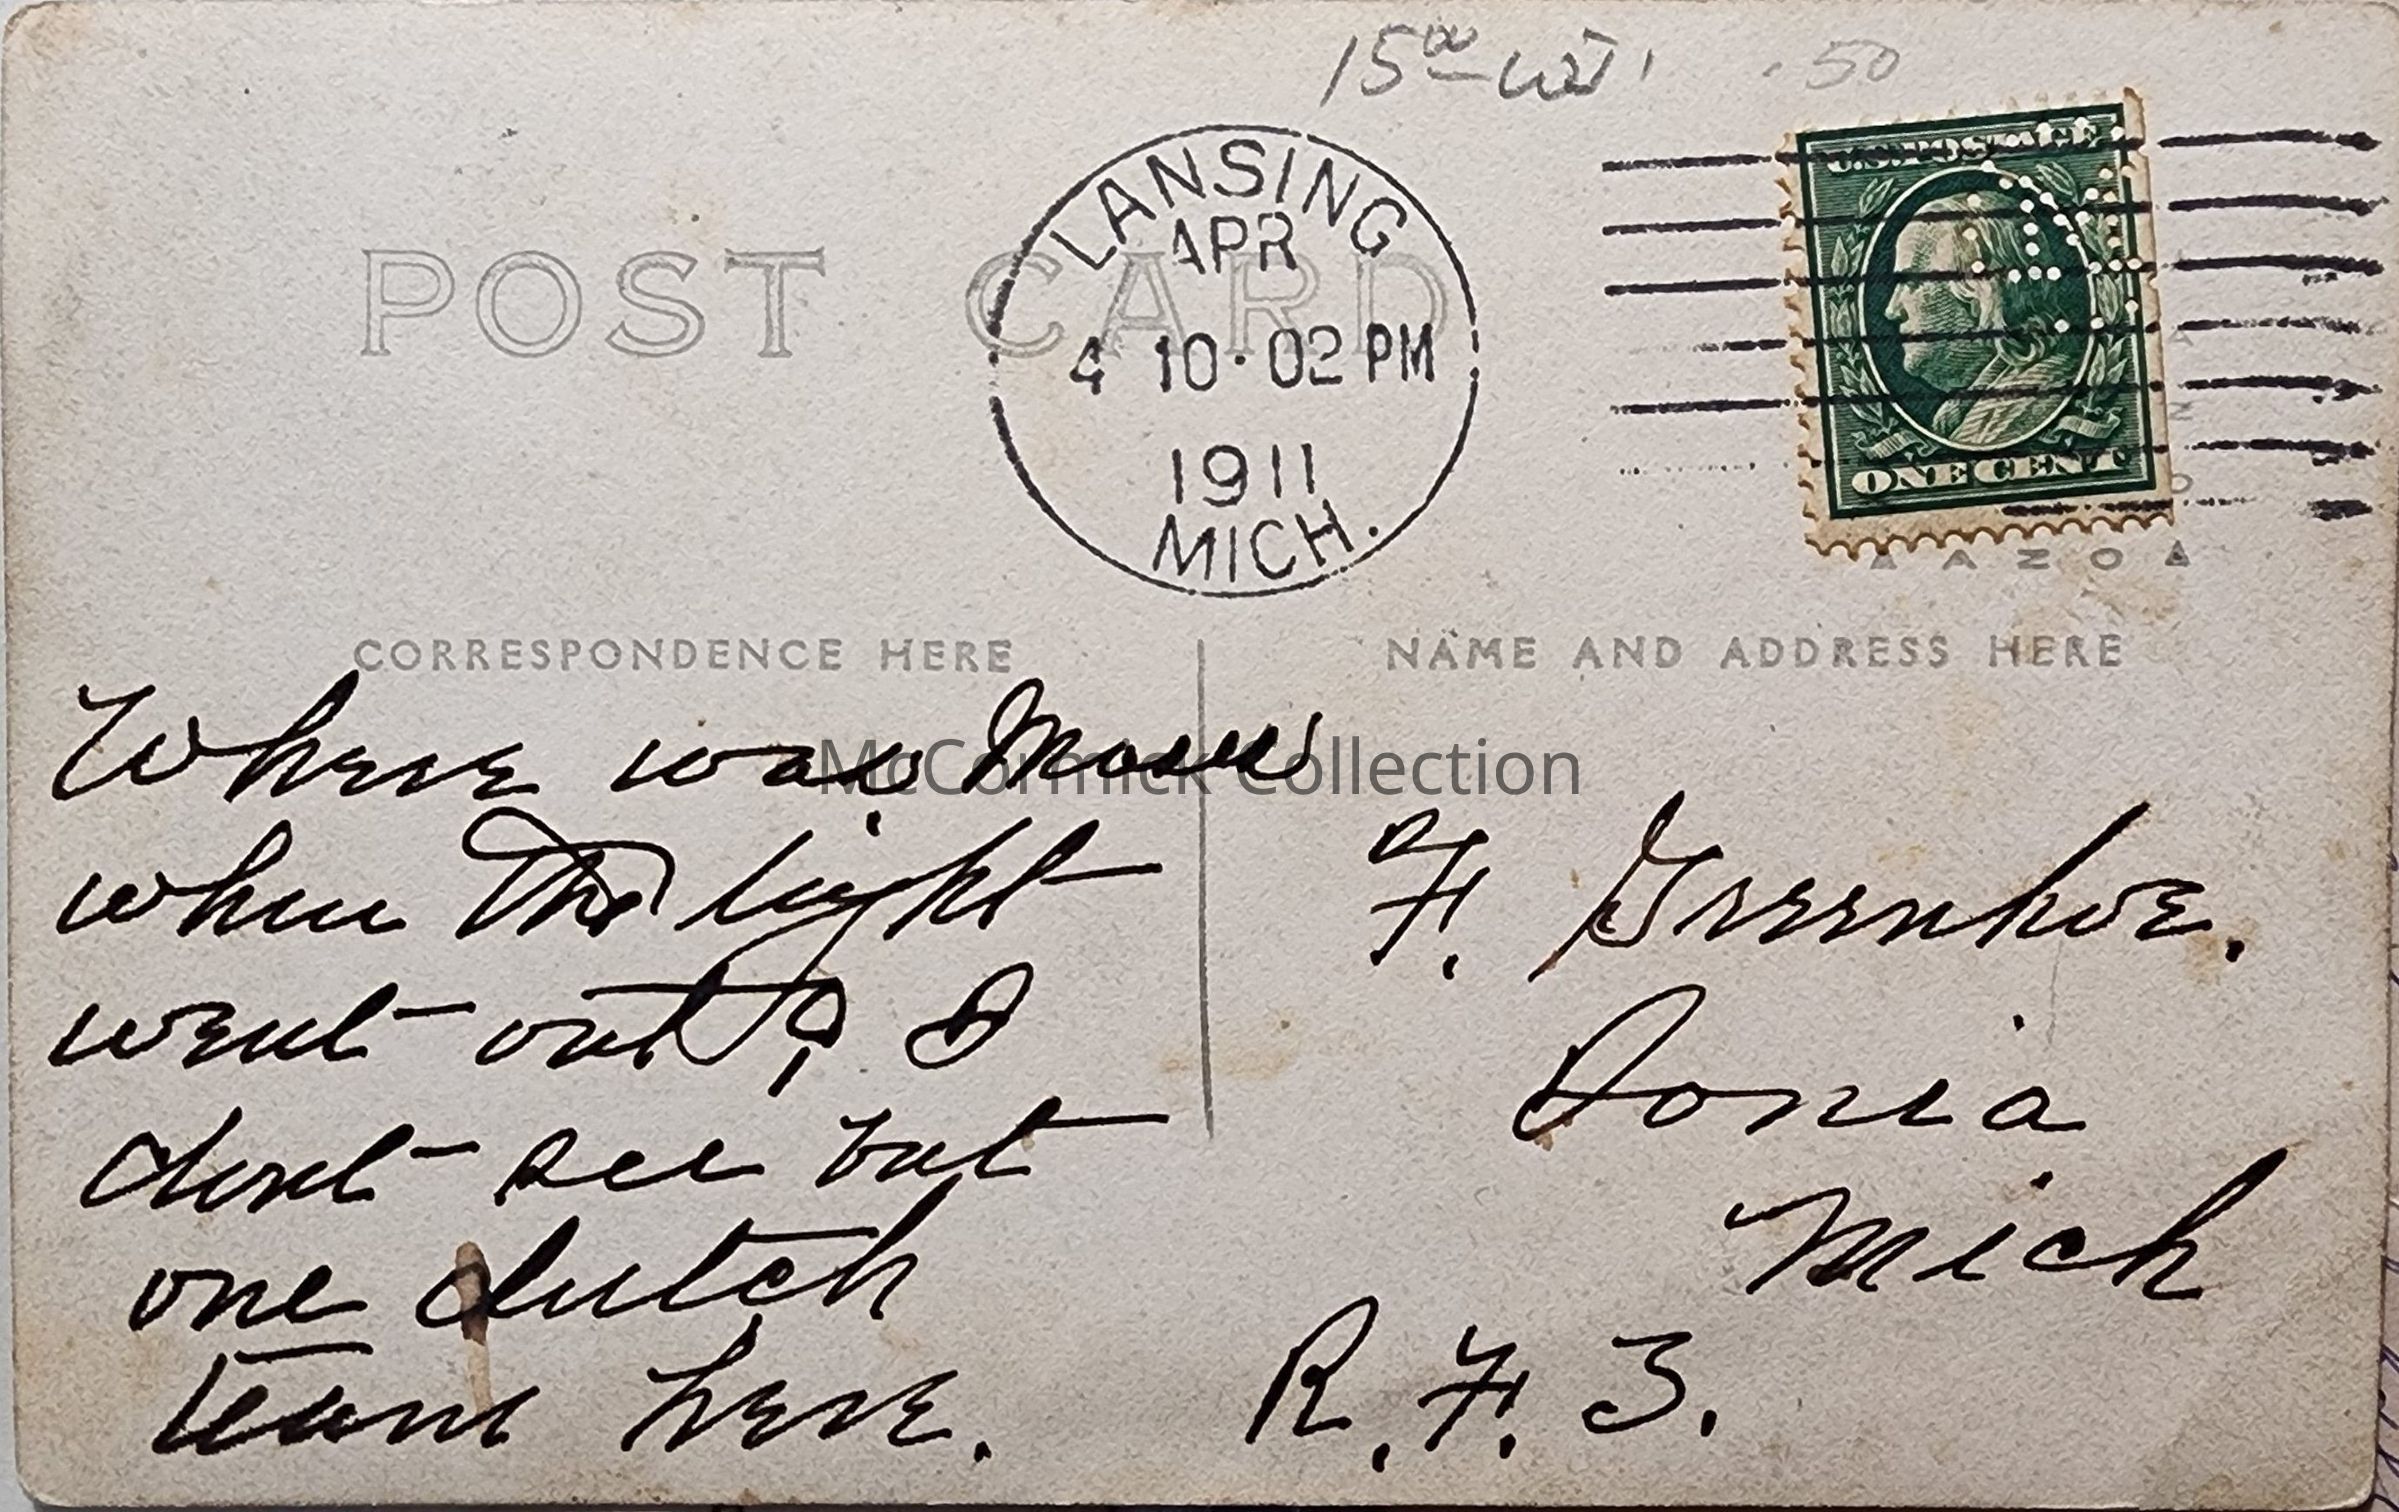 15 00 .50
LANSING
APR
4 10·02 PM
1911
MICH.
U.S. POSTAGE
ONE CENT
POST CARD
AZO
CORRESPONDENCE HERE
NAME AND ADDRESS HERE
McCormick Collection
Where was Moses
when the light
went out? I
dont see but
one dutch
team here.
F. Greenhoe.
Ionia
Mich
R.F. 3.